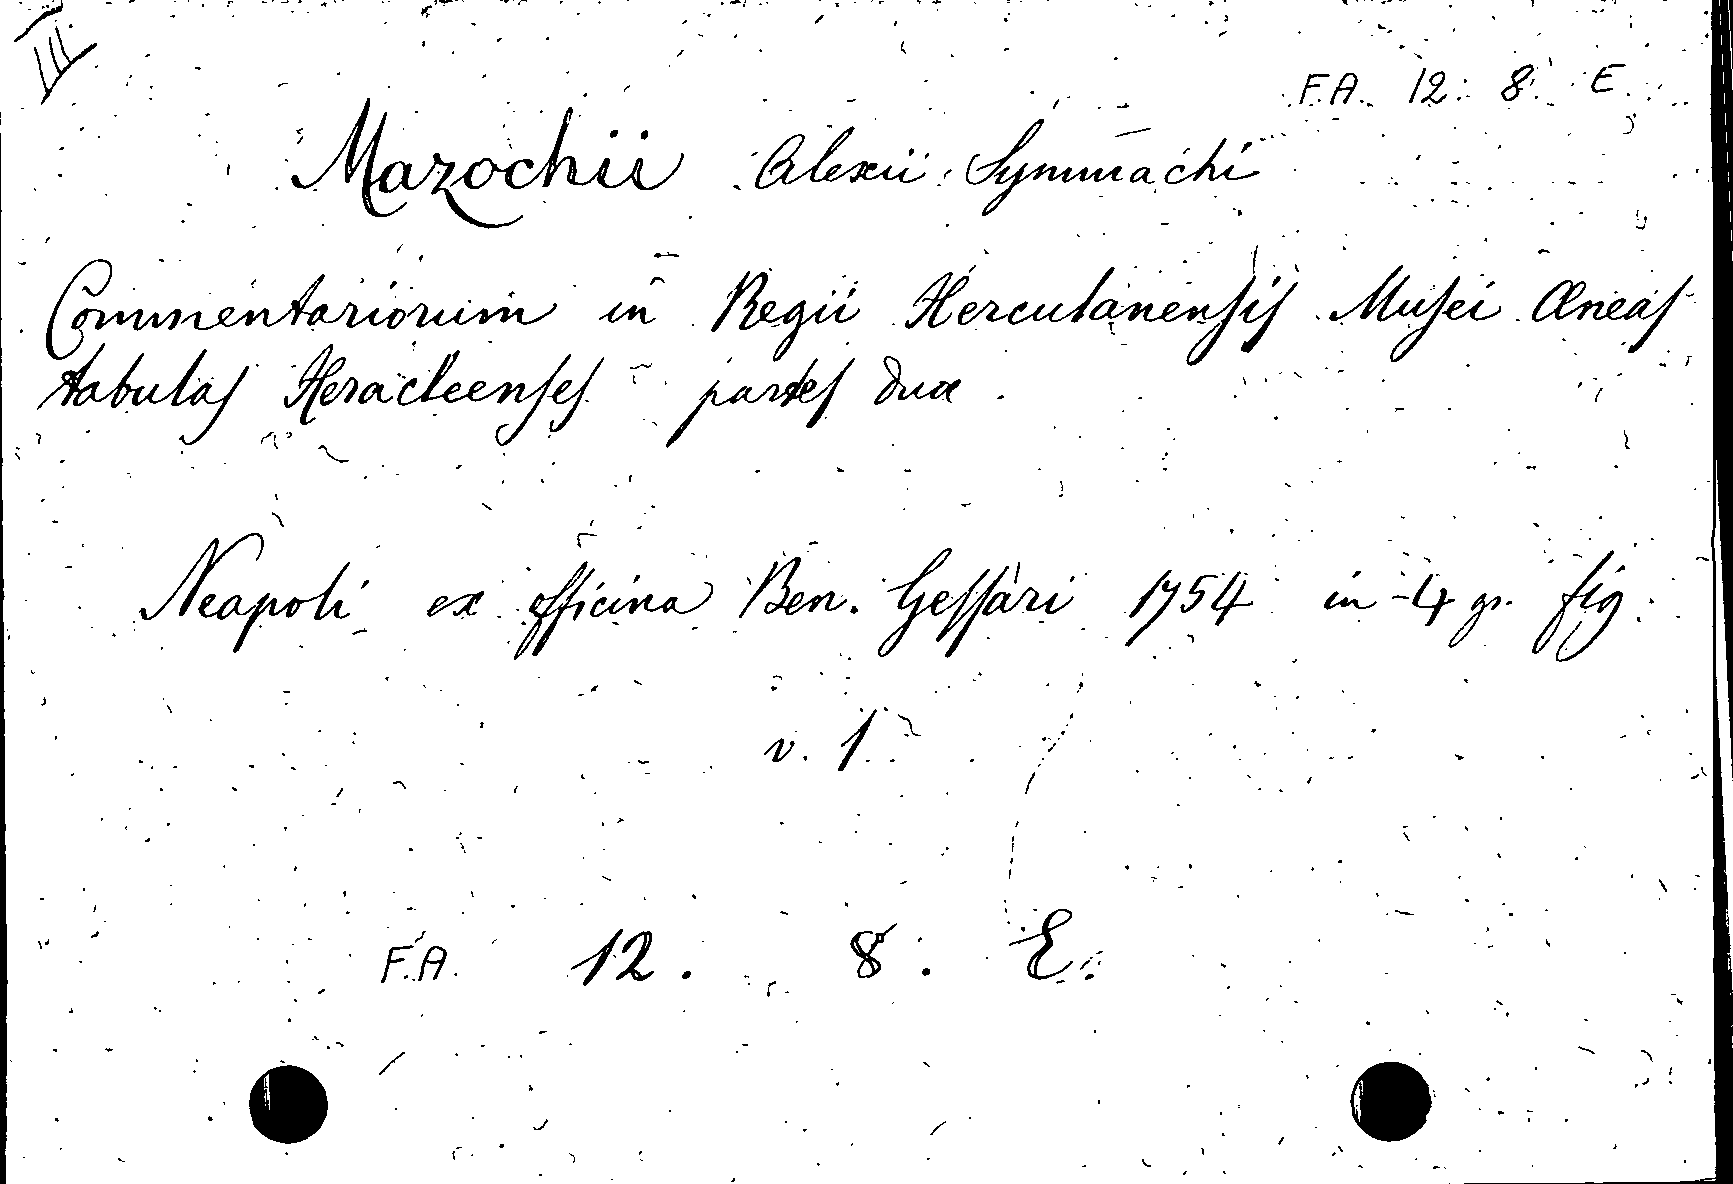 III
F.A. 12. 8. E.
Mazochii Alexii Symmachi
Commentariorum in Regii Herculanensis Musei Æneas
tabulas Heracleenses partes duæ.
Neapoli ex officina Ben. Gessari 1754 in-4 gr. fig.
v. 1
F.A. 12. 8. E.